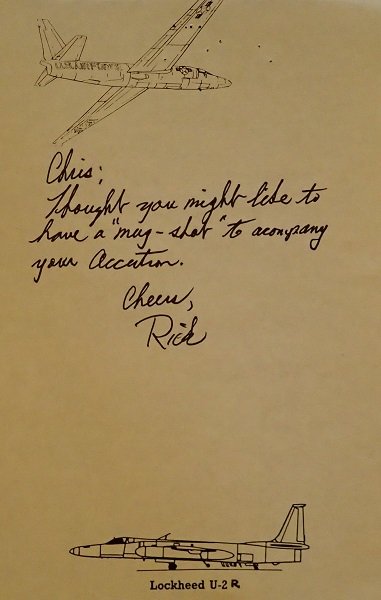 U.S. AIR FORCE
Chris;
Thought you might like to
have a "mug-shot" to acompany
your Accutron.
Cheers,
Rick
Lockheed U-2 R